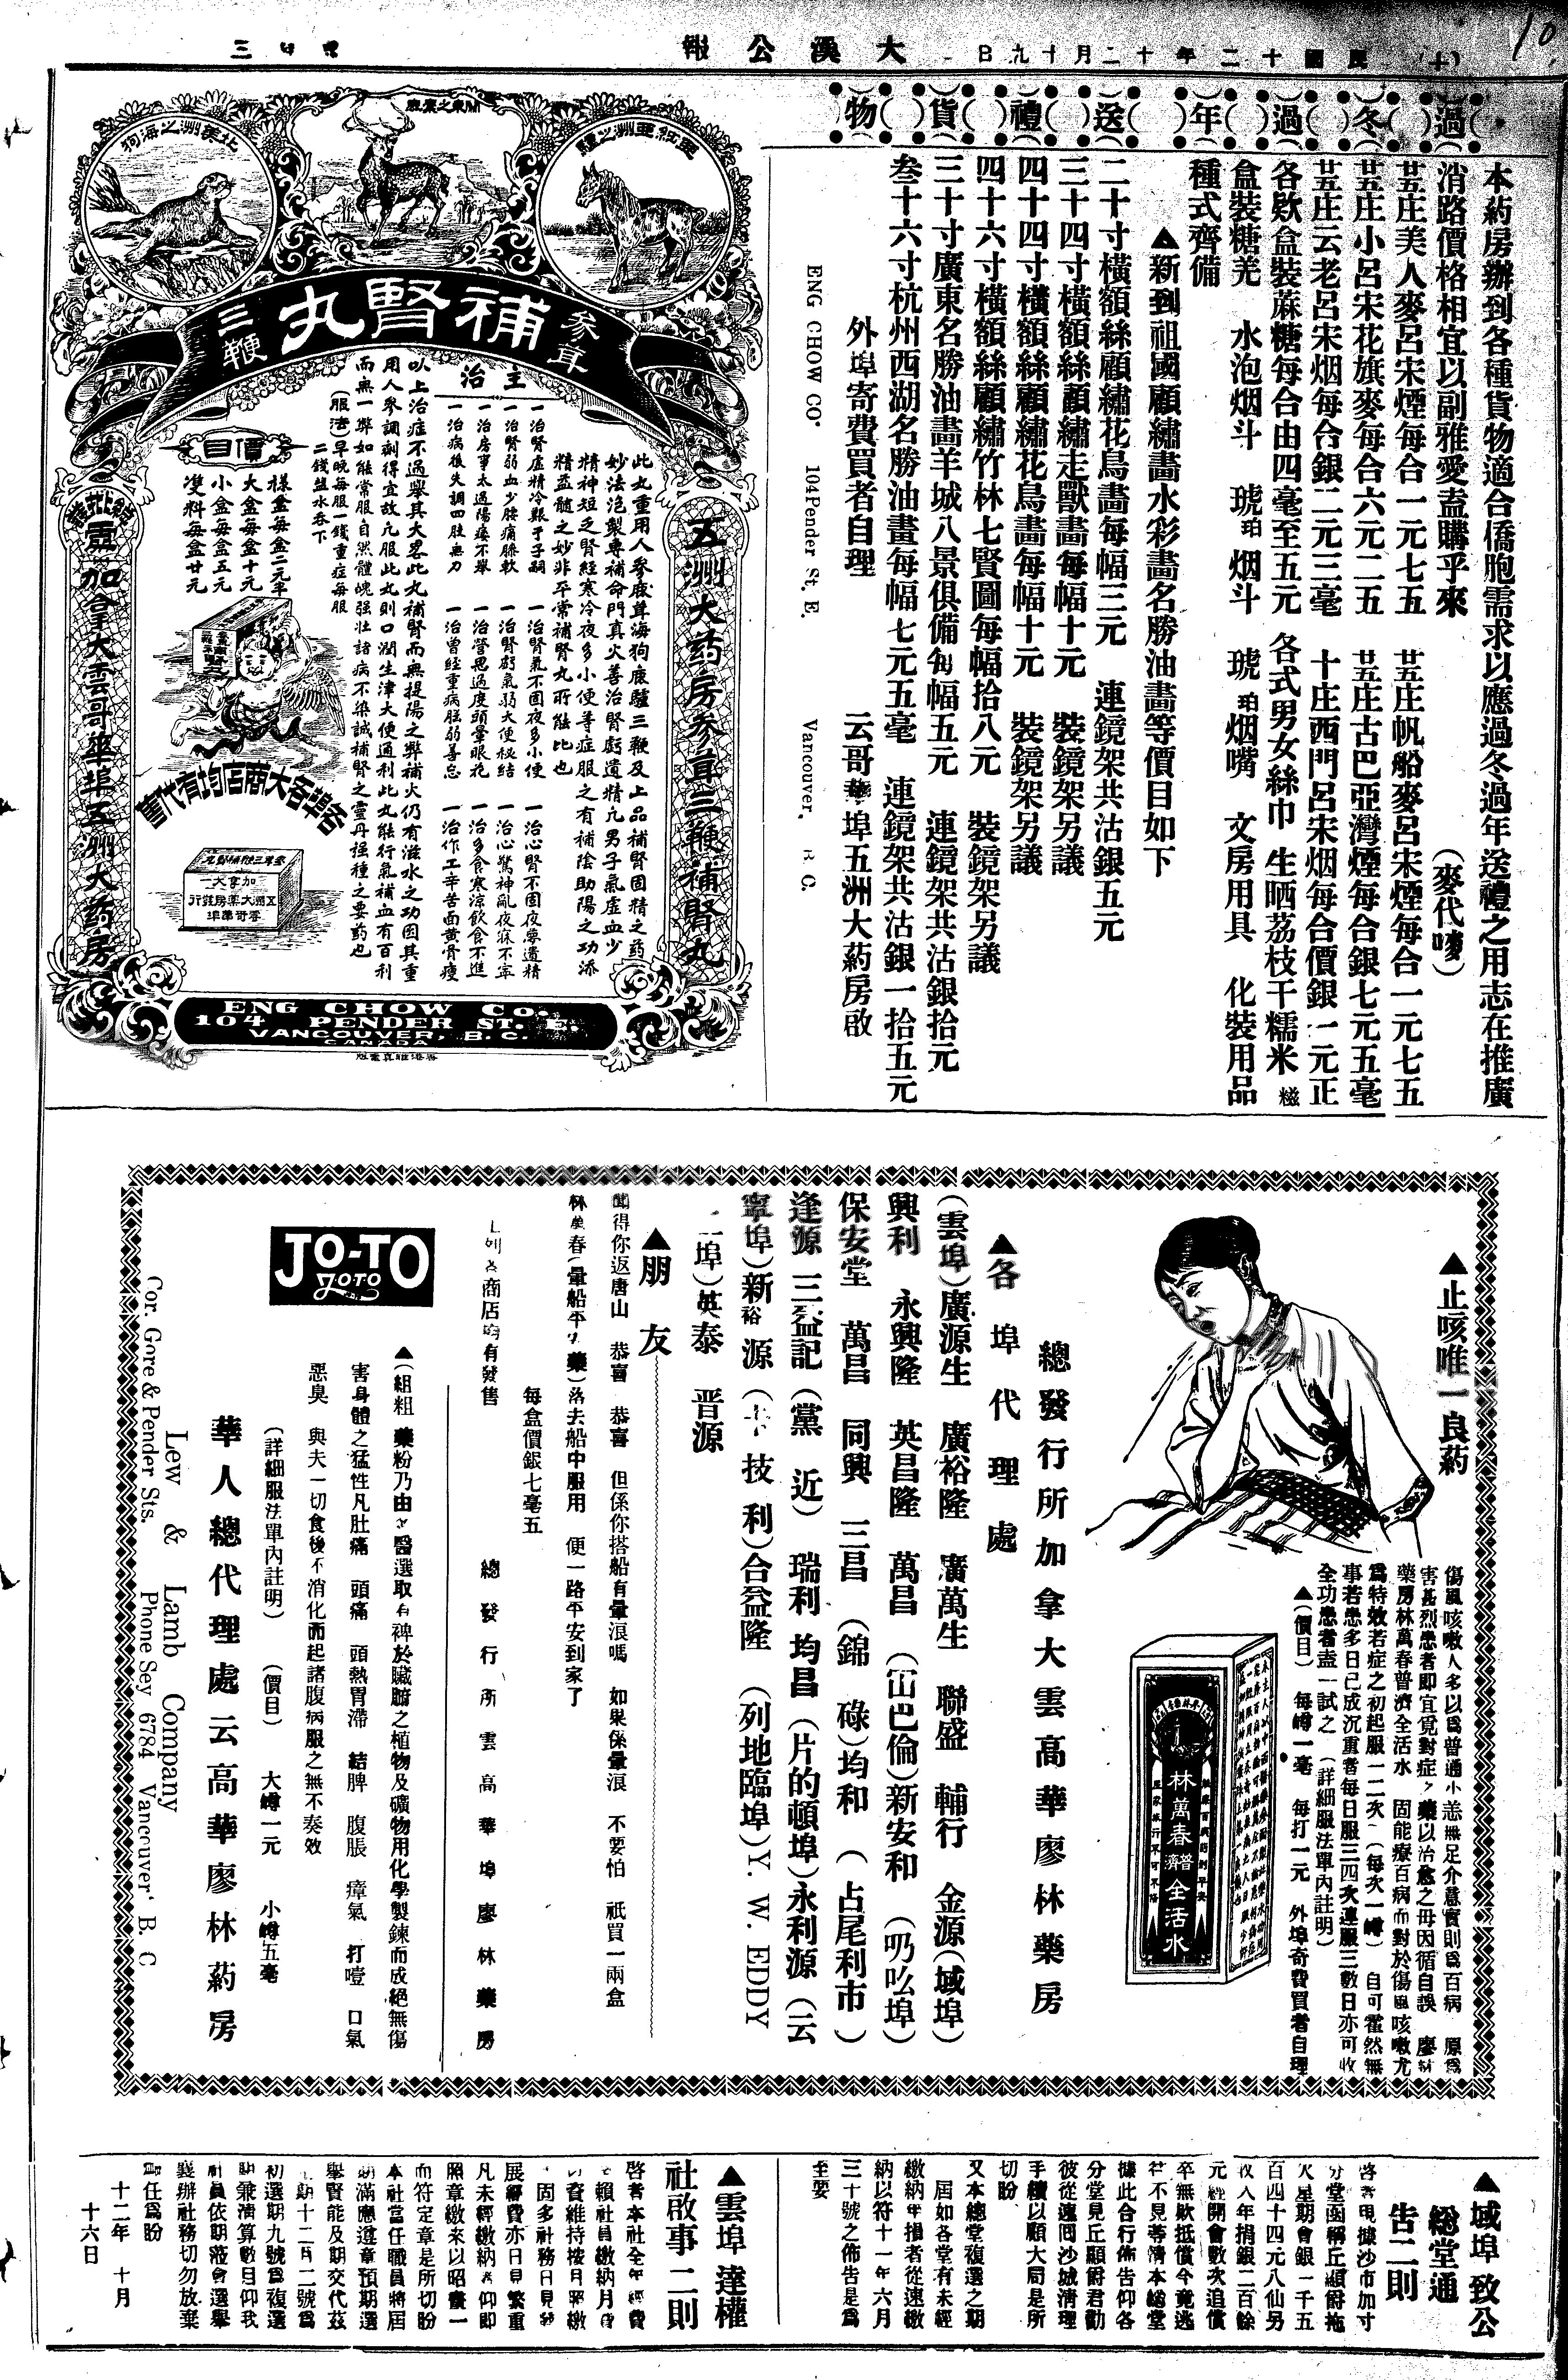 大漢公報
過冬過年送禮貨物
本葯房辦到各種貨物適合僑胞需求以應過冬過年送禮之用志在推廣
消路價格相宜以副雅愛盍購乎來
(麥代嘜)
廿五庄美人麥呂宋煙每合一元七五 廿五庄帆船麥呂宋煙每合一元七五
廿五庄小呂宋花旗麥每合六元二五 廿五庄古巴亞灣煙每合銀七元五毫
廿五庄云老呂宋烟每合銀二元三毫 十庄西門呂宋烟每合價銀一元正
各欵盒裝蔴糖每合由四毫至五元 各式男女絲巾 生晒荔枝干糯米糍
盒裝糖羌 水泡烟斗 琥珀烟斗 琥珀烟嘴 文房用具 化裝用品
種式齊備
▲新到祖國顧繡畫水彩畫名勝油畫等價目如下
二十寸橫額絲顧繡花鳥畫每幅三元 連鏡架共沽銀五元
三十四寸橫額絲顧繡走獸畫每幅十元 裝鏡架另議
四十四寸橫額絲顧繡花鳥畫每幅十元 裝鏡架另議
四十六寸橫額絲顧繡竹林七賢圖每幅拾八元 裝鏡架另議
三十寸廣東名勝油畫羊城八景俱備每幅五元 連鏡架共沽銀拾元
叁十六寸杭州西湖名勝油畫每幅七元五毫 連鏡架共沽銀一拾五元
外埠寄費買者自理 云哥華埠五洲大葯房啟
ENG CHOW CO. 104 Pender St. E. Vancouver, B. C.
北美洲之海狗
更紐亞洲之驢
參茸補腎丸三鞭
五洲大葯房參茸三鞭補腎丸
主治
一治腎虛精冷艱于子嗣 一治腎氣不固夜多小便 一治心腎不固夜夢遺精
一治腎弱血少腰痛膝軟 一治腎虧氣弱大便秘結 一治心驚神亂夜寐不寧
一治房事太過陽痿不舉 一治營思過度頭暈眼花 一治多食寒涼飲食不進
一治病後失調四肢無力 一治曾經重病尫弱善忘 一治作工辛苦面黃骨瘦
此丸重用人參鹿茸海狗鹿驢三鞭及上品補腎固精之葯
妙法泡製專補命門真火善治腎虧遺精凢男子氣虛血少
精神短乏腎經寒冷夜多小便等症服之有補陰助陽之功添
精益髓之妙非平常補腎丸所能比也
以上治症不過舉其大畧此丸補腎而無提陽之弊補火仍有滋水之功因其重
用人參調劑得宜故凢服此丸則口潤生津大便通利此丸能行氣補血有百利
而無一弊如能常服自然體魄强壯諸病不染誠補腎之靈丹强種之要葯也
(服法)早晚每服一錢重症每服
二錢盐水吞下
價目
樣盒每盒二元半
大盒每盒十元
小盒每盒五元
雙料每盒廿元
各埠各大商店均有代售
加拿大雲哥華埠五洲大葯房
ENG CHOW Co.
104 PENDER ST. E.
VANCOUVER, B. C.
CANADA
▲止咳唯一良葯
傷風咳嗽人多以爲普通小恙無足介意實則爲百病 原爲
害甚烈患者即宜覓對症之藥以治愈之毋因循自誤 廖林
藥房林萬春普濟全活水 固能療百病而對於傷風咳嗽尤
爲特效若症之初起服一二次(每次一罇)自可霍然無
事若患多日已成沉重者每日服三四次連服三數日亦可收
全功患者盍一試之 (詳細服法單內註明)
▲(價目) 每罇一毫 每打一元 外埠寄費買者自理
林萬春普濟全活水
總發行所加拿大雲高華廖林藥房
▲各埠代理處
(雲埠)廣源生 廣裕隆 廣萬生 聯盛 輔行 金源(域埠)
興利 永興隆 英昌隆 萬昌 (冚巴倫)新安和 (叨吆埠)
保安堂 萬昌 同興 三昌 (錦碌)均和 (占尾利市)
逢源 三益記 (黨近) 瑞利 均昌 (片的頓埠)永利源 (云
寧埠)新裕源 (卡技利)合益隆 (列地臨埠)Y. W. EDDY
埠)英泰 晋源
▲朋友
聞得你返唐山 恭喜 恭喜 但係你搭船有暈浪嗎 如果係暈浪 不要怕 祇買一兩盒
林萬春(暈船平安藥)落去船中服用 便一路平安到家了
每盒價銀七毫五
上列各商店均有發售 總發行所雲高華埠廖林藥房
JO-TO
JOTO
藥粉乃由 醫選取有裨於臟腑之植物及礦物用化學製鍊而成絕無傷
害身體之猛性凡肚痛 頭痛 頭熱胃滯 結脾 腹脹 瘴氣 打噎 口氣
惡臭 與夫一切食後不消化而起諸腹病服之無不奏效
(詳細服法單內註明) (價目) 大罇一元 小罇五毫
華人總代理處云高華廖林葯房
Lew & Lamb Company
Cor. Gore & Pender Sts. Phone Sey 6784 Vancouver, B. C
▲域埠致公
總堂通
告二則
啓者現據沙市加寸
分堂函稱丘顯爵拖
欠星期會銀一千五
百四十四元八仙另
收入年捐銀二百餘
元經開會數次追償
卒無欵抵償今竟逃
往不見等情本總堂
據此合行佈告仰各
分堂見丘顯爵君勸
彼從速囘沙城清理
手續以顧大局是所
切盼
又本總堂複選之期
屆如各堂有未經
繳納年捐者從速繳
納以符十一年六月
三十號之佈告是爲
至要
▲雲埠達權
社啟事二則
啓者本社全年經費
賴社員繳納月費
資維持按月照繳
固多社務日見發
展經費亦日見繁重
凡未經繳納者仰即
照章繳來以昭畫一
而符定章是所切盼
本社當任職員將屆
期滿應遵章預期選
舉賢能及期交代茲
期十二月二號爲
初選期九號爲複選
期兼清算數目仰我
社員依期蒞會選舉
襄辦社務切勿放棄
責任爲盼
十二年 十月
十六日